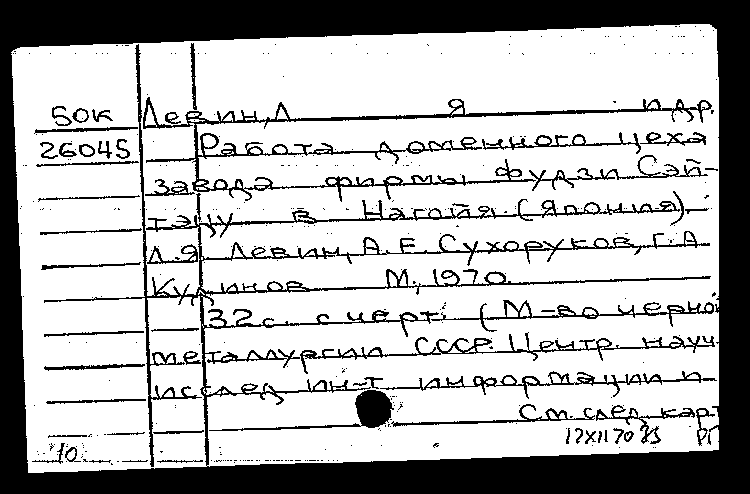 50к Левин, Л Я и др.
26045 Работа доменного цеха
завода фирмы Фудзи Сэй-
тэцу в Нагойя (Япония).
Л.Я. Левин, А.Е. Сухоруков, Г.А
Кудинов М., 1970.
32с. с черт. (М-во черной
металлургии СССР. Центр. науч.
исслед ин-т информации и
См. след. карт
10 17XII70